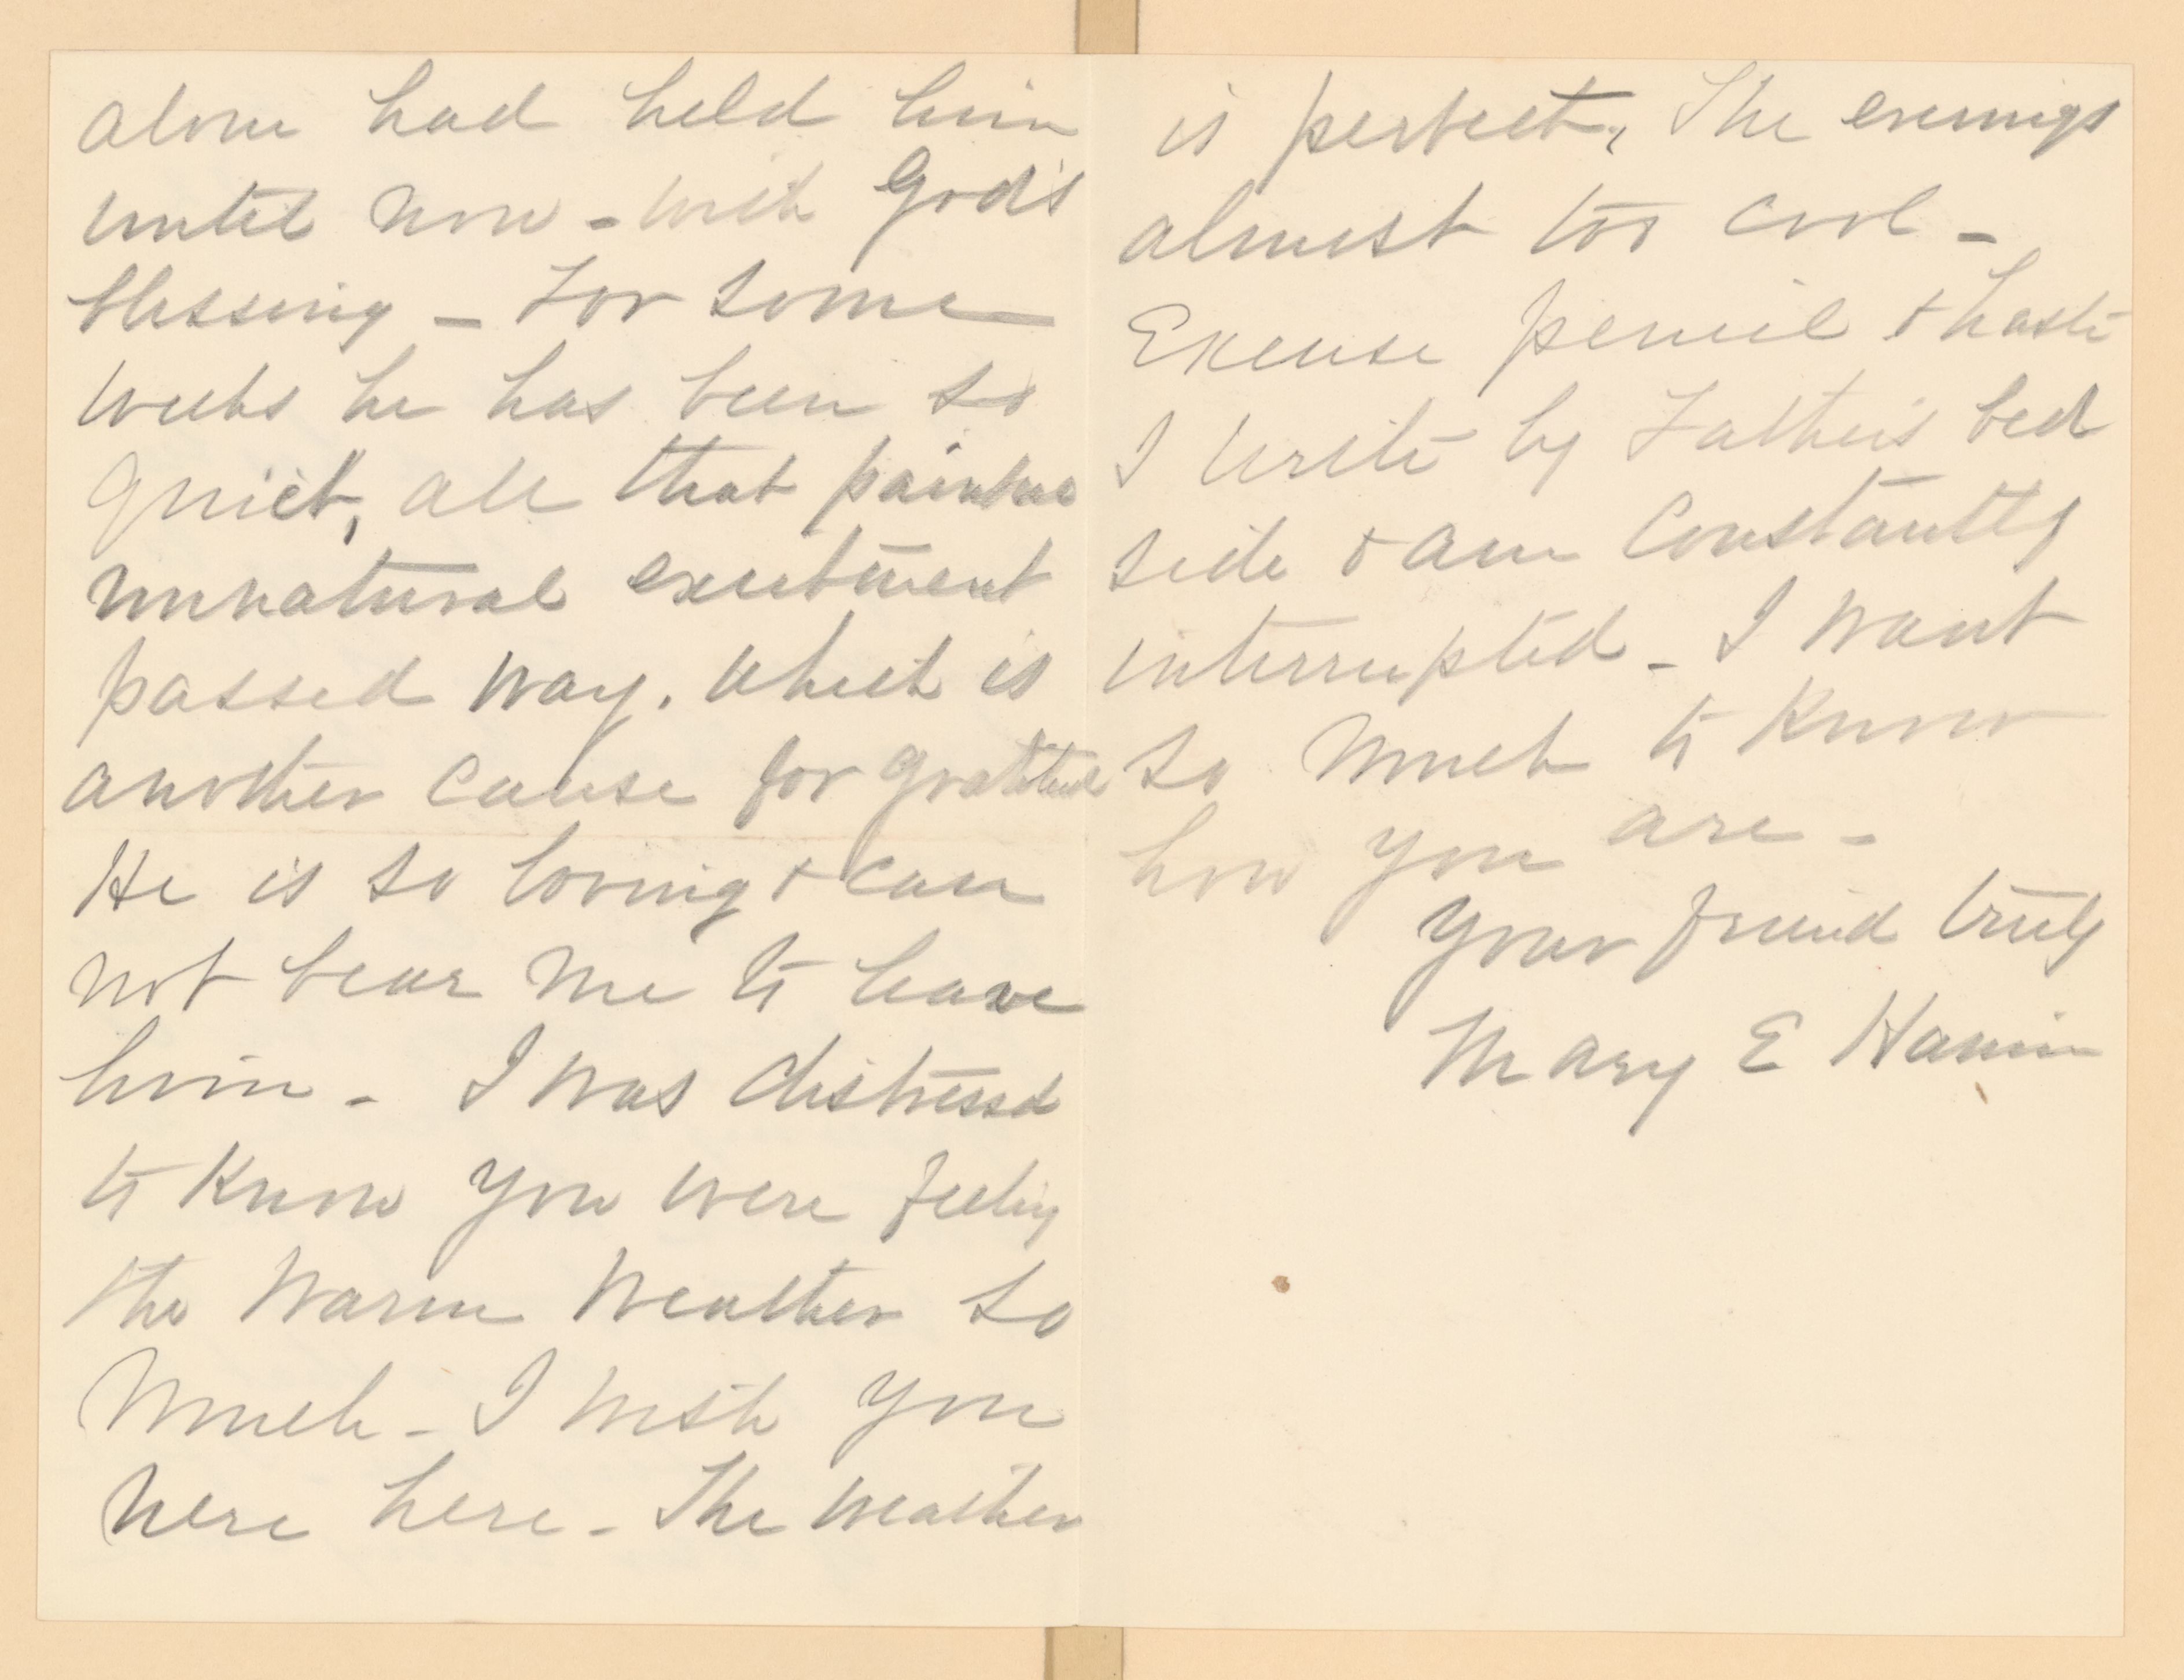 alone had held him
until now - with God's
blessing - For some
weeks he has been so
quiet, all that painful
unnatural excitement
passed way. Which is
another cause for gratitude
He is so loving & can
not bear me to leave
him - I was distressed
to know you were feeling
the warm weather so
much - I wish you
were here - The weather
is perfect, The evenings
almost too cool -
Excuse pencil & haste
I write by Father's bed
side & am constantly
interrupted - I want
so much to know
how you are -
Your friend truly
Mary E